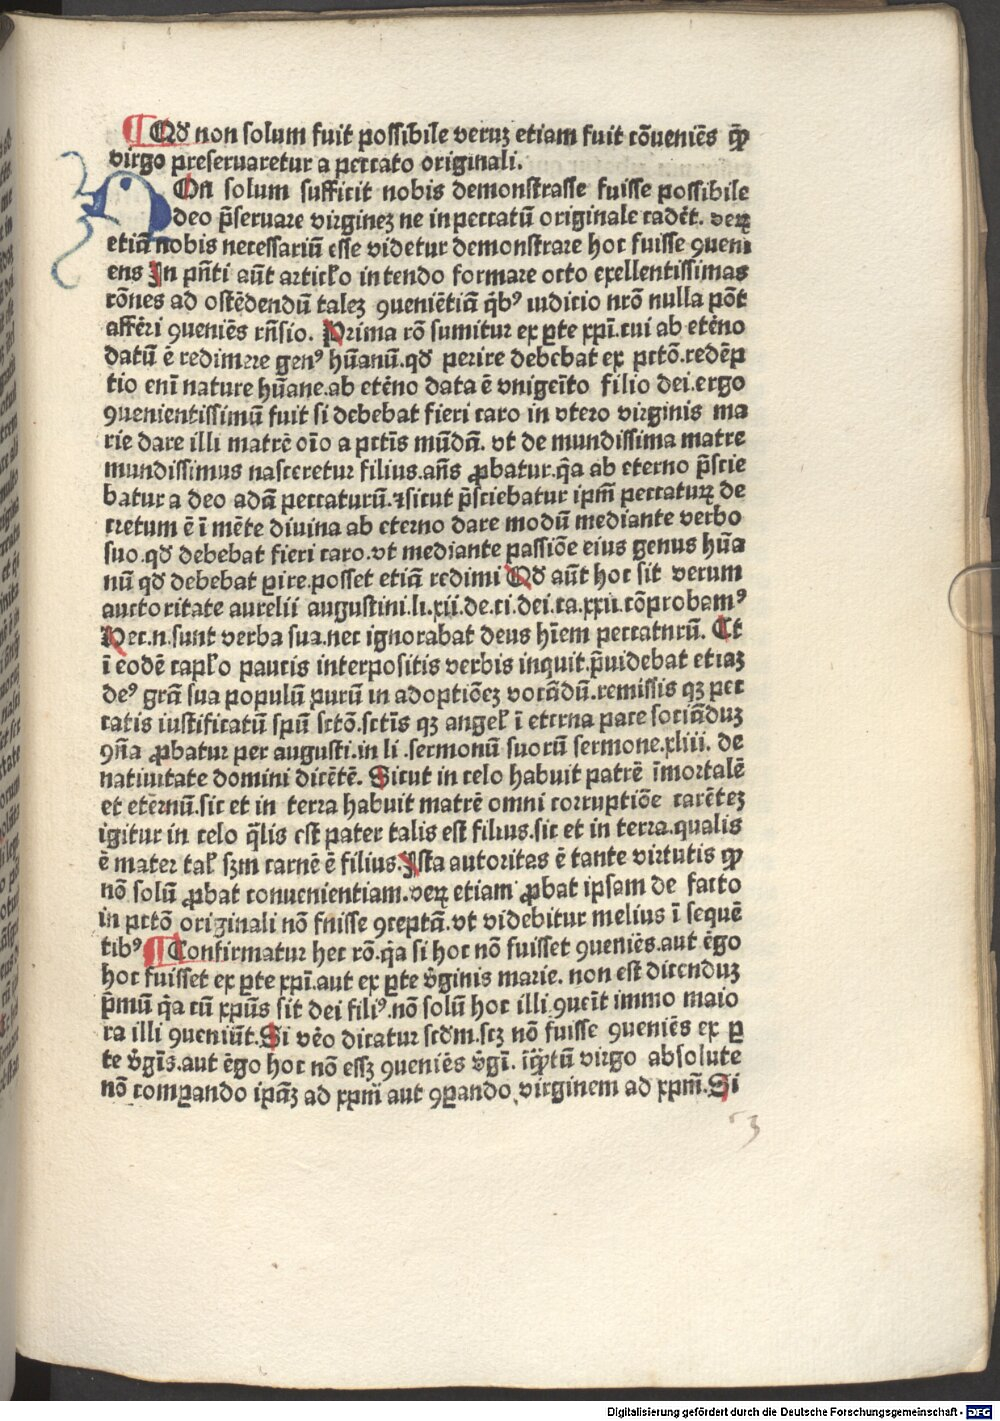 ¶ Qđ non solum fuit possibile veruꝫ etiam fuit cõueniẽs ꝙ̃
virgo preseruaretur a peccato originali.
NOn solum sufficit nobis demonstrasse fuisse possibile
deo p̃seruare virgineꝫ ne in peccatũ originale cadẽt. veꝝ
etiã nobis necessariũ esse videtur demonstrare hoc fuisse ꝯueni
ens In pñti aũt articľo intendo formare octo excellentissimas
rõnes ad ostẽdendũ taleꝫ ꝯueniẽtiã q̃bꝰ iudicio nrõ nulla põt
affẽri ꝯueniẽs rñsio. Prima rõ sumitur ex ꝑte xpĩ.cui ab etẽno
datũ ẽ redimere genꝰ hũanũ.qđ perire debebat ex pctõ.redẽp
tio enĩ nature hũane.ab etẽno data ẽ vnigeĩto filio dei.ergo
ꝯuenientissimũ fuit si debebat fieri caro in vtero virginis ma
rie dare illi matrẽ oĩo a pctĩs mũdã. vt de mundissima matre
mundissimus nasceretur filius.añs ꝓbatur.q̃a ab eterno p̃scie
batur a deo adã peccaturũ.⁊sicut p̃sciebatur ipm̃ peccatuꝝ de
cretum ẽ ĩ mẽte diuina ab eterno dare modũ mediante verbo
suo.qđ debebat fieri caro.vt mediante passiõe eius genus hũa
nũ qđ debebat ꝑire.posset etiã redimi Qđ aũt hoc sit verum
auctoritate aurelii augustini.li.xii.de.ci.dei.ca.xxii.cõprobamꝰ
Hec.n.sunt verba sua.nec ignorabat deus hĩem peccatnrũ. Et
ĩ eodẽ capľo paucis interpositis verbis inquit.p̃uidebat etiaꝫ
deꝰ grã sua populũ purũ in adoptiõeꝫ vocãdũ.remissis qꝫ pec
catis iustificatũ spũ sctõ.sctĩs qꝫ angeľ ĩ eterna pace sociãduꝫ
ꝯñа ꝓbatur per augusti.in li .sermonũ suorũ sermone.xliii. de
natiuitate domini dicẽtẽ. Sicut in celo habuit patrẽ ĩmortalẽ
et etẽrnũ.sic et in terra habuit matrẽ omni corruptiõe carẽteꝫ
igitur in celo q̃lis est pater talis est filius.sic et in terra.qualis
ẽ mater taľ sꝫm carnẽ ẽ filius.Ista autoritas ẽ tante virtutis ꝙ
nõ solũ ꝓbat conuenientiam.veꝝ etiam ꝓbat ipsam de facto
in pctõ originali nõ fnisse ꝯceptã.vt videbitur melius ĩ sequẽ
tibꝰ ¶ Confirmatur hec rõ.q̃a si hoc nõ fuisset ꝯueniẽs.aut ẽgo
hoc fuisset ex ꝑte xpĩ.aut ex ꝑte v̉ginis marie. non est dicenduꝫ
p̃mũ q̃a cũ xpũs sit dei filiꝰ.nõ solũ hoc illi ꝯueĩt immo maio
ra illi ꝯueniũt.Si vẽo dicatur scđm.scꝫ nõ fuisse ꝯueniẽs ex ꝑ
te v̉gĩs.aut ẽgo hoc nõ essꝫ ꝯueniẽs v̉gĩ. ĩꝙ̃tũ virgo absolute
nõ comꝑando ipãꝫ ad xpm̃ aut ꝯꝑando virginem ad xpm̃.Si
Digitalisierung gefördert durch die Deutsche Forschungsgemeinschaft - DFG